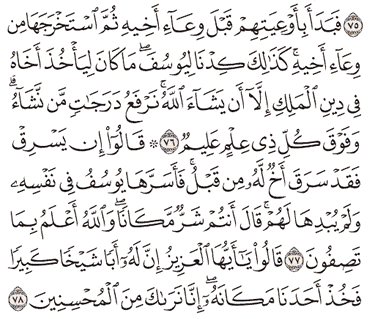 ٧٥ فَبَدَأَ بِأَوْعِيَتِهِمْ قَبْلَ وِعَآءِ أَخِيهِ ثُمَّ ٱسْتَخْرَجَهَا مِن
وِعَآءِ أَخِيهِۚ كَذَٰلِكَ كِدْنَا لِيُوسُفَۖ مَا كَانَ لِيَأْخُذَ أَخَاهُ
فِى دِينِ ٱلْمَلِكِ إِلَّآ أَن يَشَآءَ ٱللَّهُۚ نَرْفَعُ دَرَجَٰتٍ مَّن نَّشَآءُۗ
وَفَوْقَ كُلِّ ذِى عِلْمٍ عَلِيمٌ ٧٦ ۞ قَالُوٓا۟ إِن يَسْرِقْ
فَقَدْ سَرَقَ أَخٌ لَّهُۥ مِن قَبْلُۚ فَأَسَرَّهَا يُوسُفُ فِى نَفْسِهِۦ
وَلَمْ يُبْدِهَا لَهُمْۚ قَالَ أَنتُمْ شَرٌّ مَّكَانًاۖ وَٱللَّهُ أَعْلَمُ بِمَا
تَصِفُونَ ٧٧ قَالُوا۟ يَٰٓأَيُّهَا ٱلْعَزِيزُ إِنَّ لَهُۥٓ أَبًا شَيْخًا كَبِيرًا
فَخُذْ أَحَدَنَا مَكَانَهُۥٓۖ إِنَّا نَرَىٰكَ مِنَ ٱلْمُحْسِنِينَ ٧٨